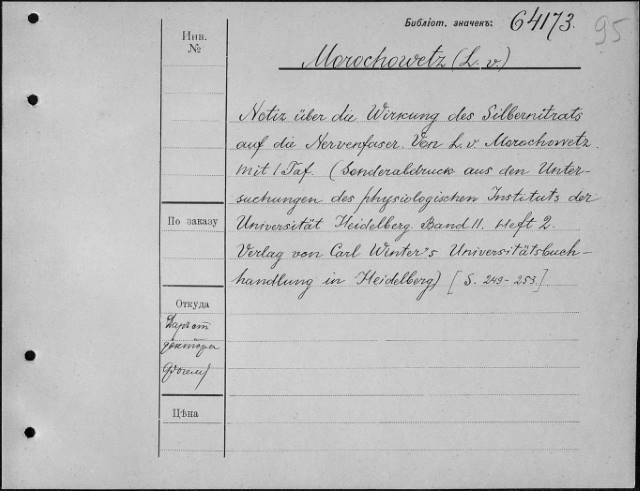 Библіот. значекъ: 64173. 95
Инв.
№
Morochowetz (L. v.)
Notiz über die Wirkung des Silbernitrats
auf die Nervenfaser. Von L. v. Morochowetz.
Mit 1 Taf. (Sonderabdruck aus den Unter-
suchungen des physiologischen Instituts der
Universität Heidelberg. Band II. Heft 2.
Verlag von Carl Winter's Universitätsbuch-
handlung in Heidelberg) [S. 249-253.]
По заказу
Откуда
доктора
Цѣна